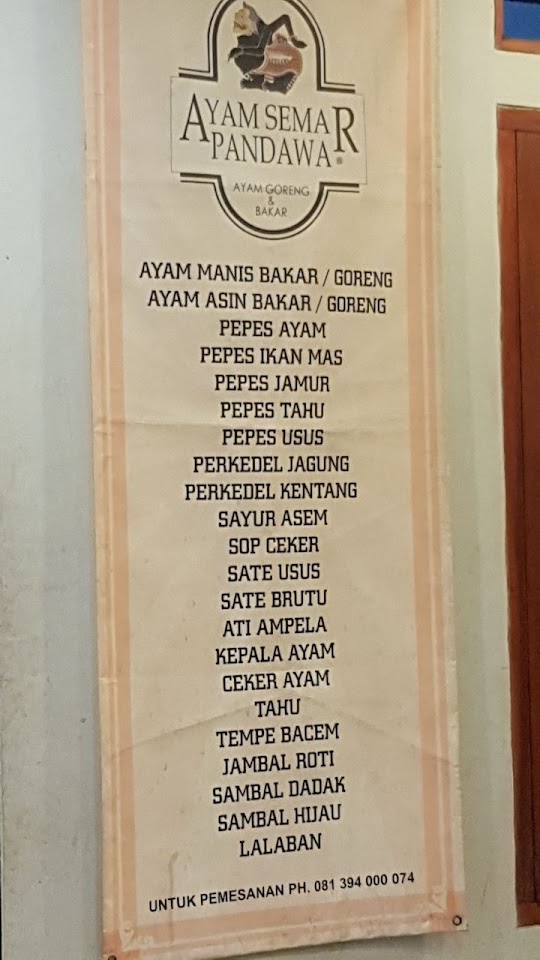 AYAM SEMAR
PANDAWA®
AYAM GORENG
&
BAKAR
AYAM MANIS BAKAR / GORENG
AYAM ASIN BAKAR / GORENG
PEPES AYAM
PEPES IKAN MAS
PEPES JAMUR
PEPES TAHU
PEPES USUS
PERKEDEL JAGUNG
PERKEDEL KENTANG
SAYUR ASEM
SOP CEKER
SATE USUS
SATE BRUTU
ATI AMPELA
KEPALA AYAM
CEKER AYAM
TAHU
TEMPE BACEM
JAMBAL ROTI
SAMBAL DADAK
SAMBAL HIJAU
LALABAN
UNTUK PEMESANAN PH. 081 394 000 074